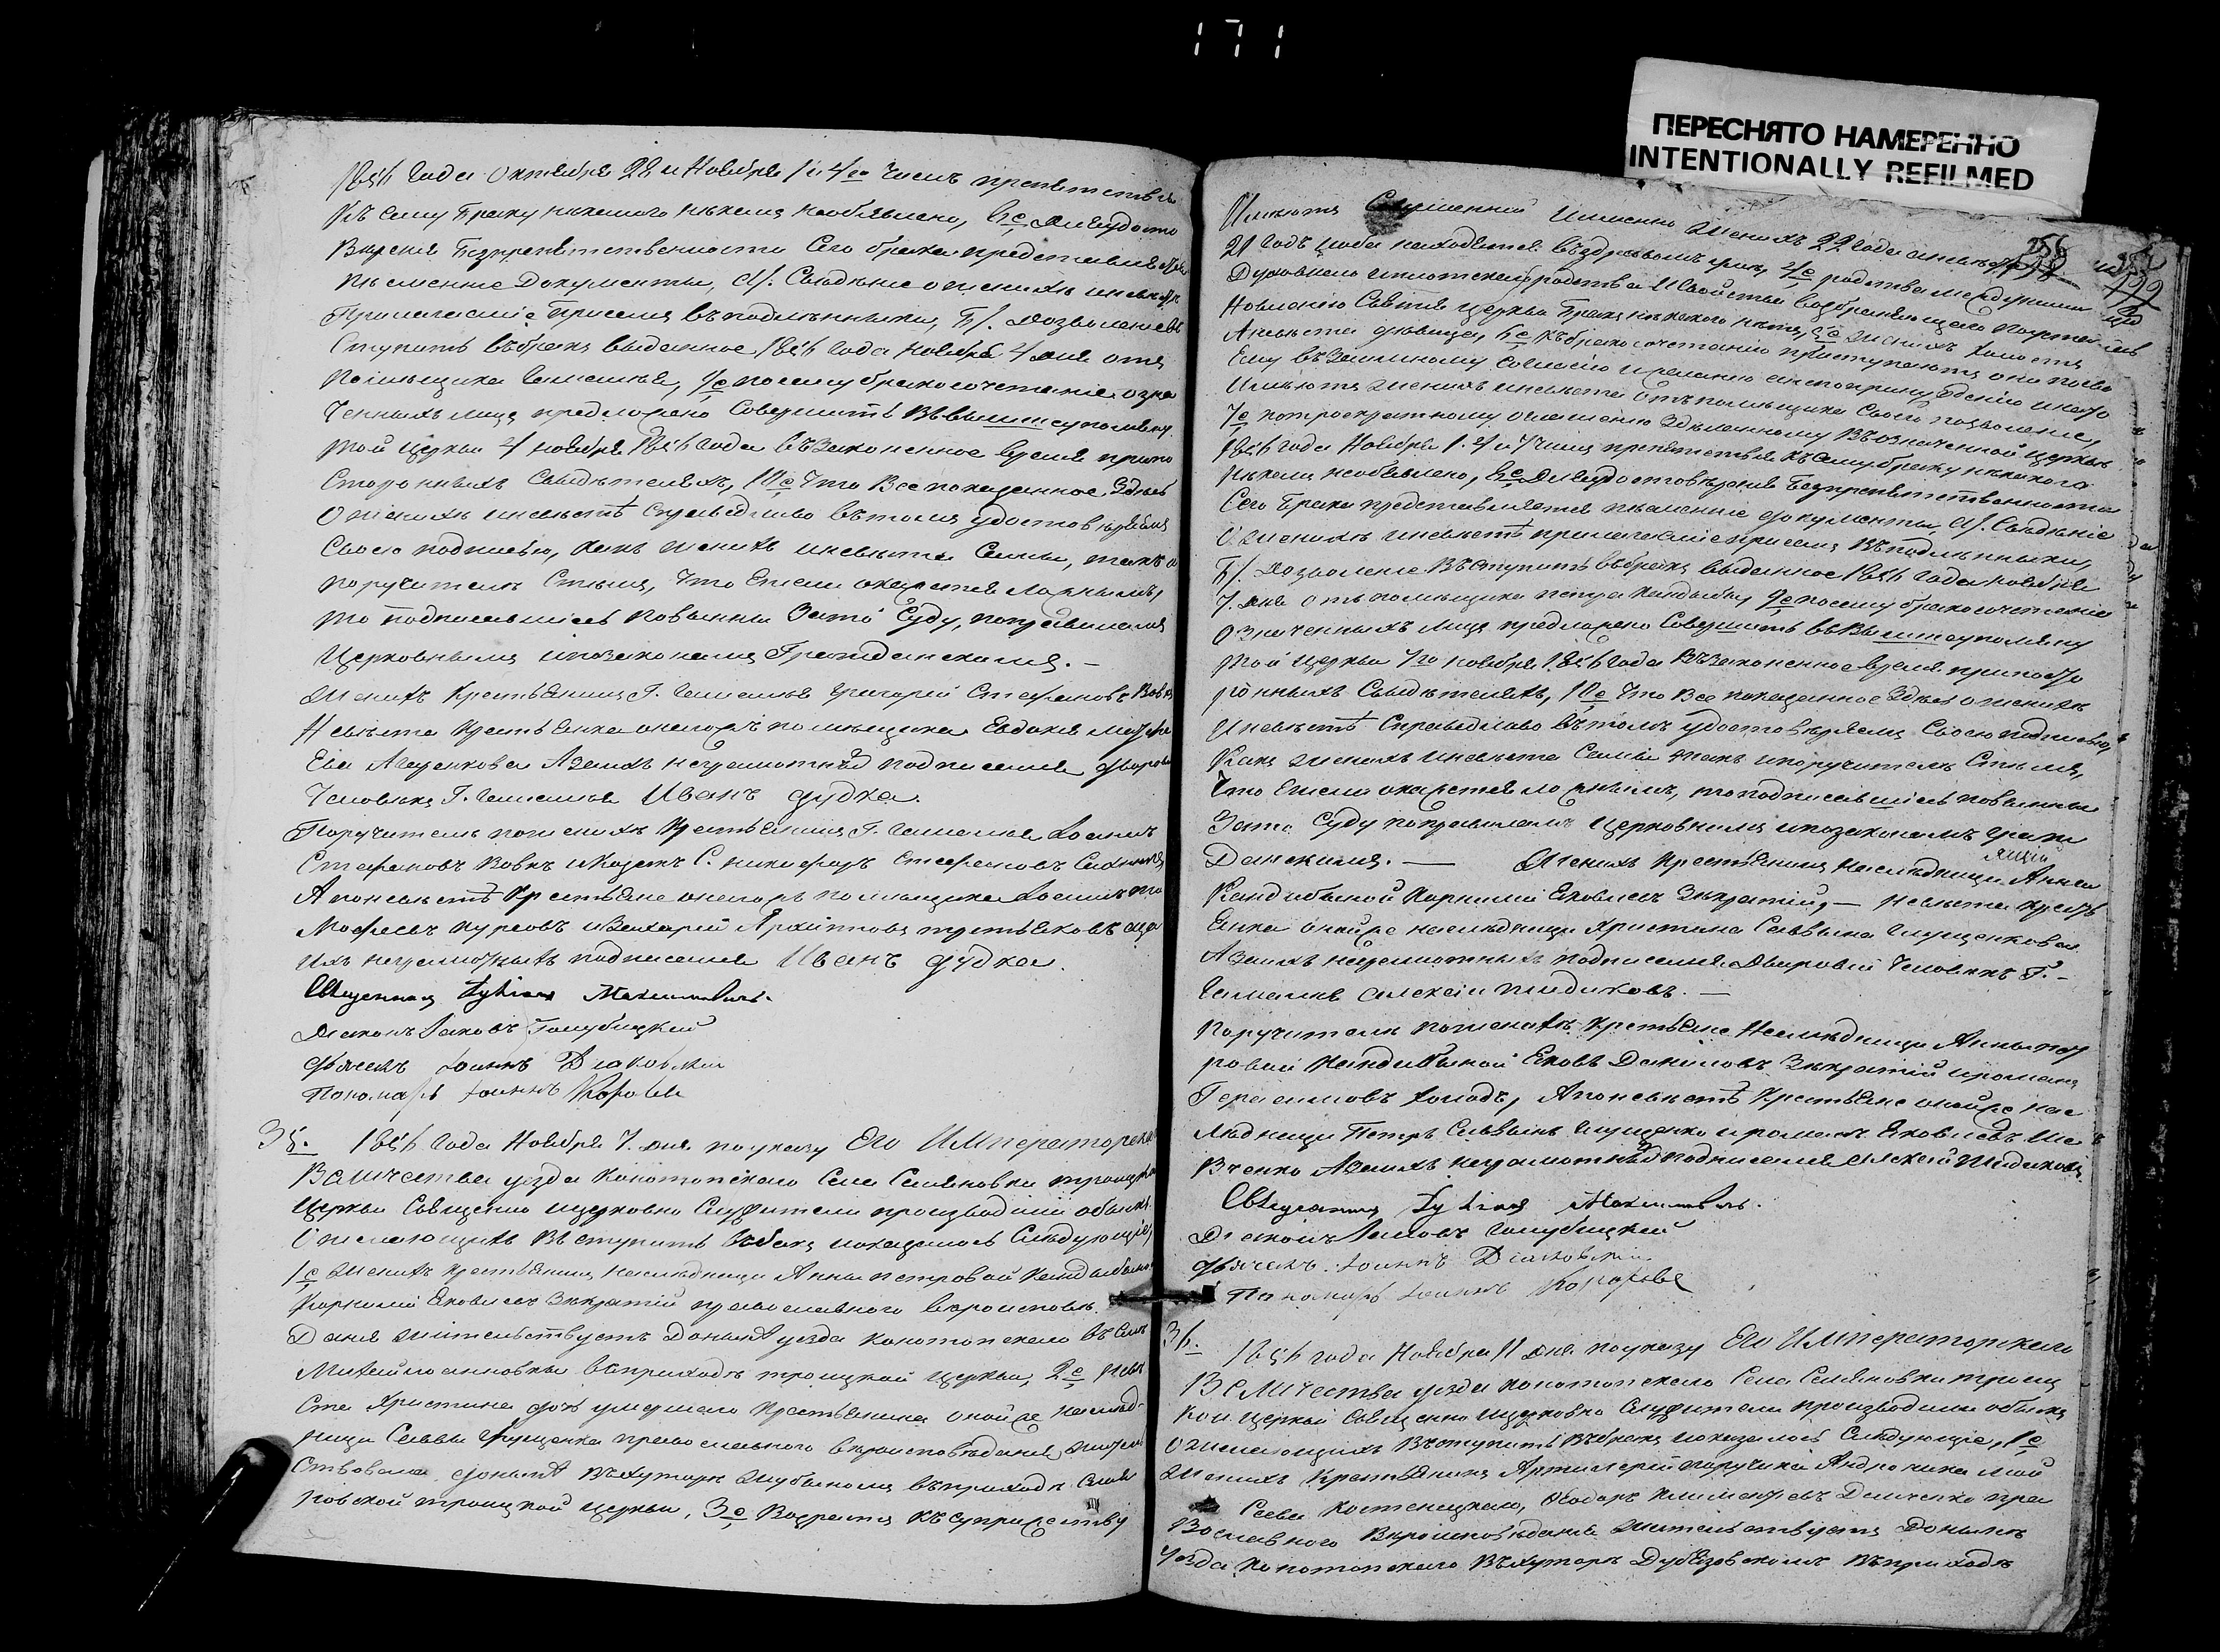 171
ПЕРЕСНЯТО НАМЕРЕННО
INTENTIONALLY REFILMED
1856 года Октября 28 и Ноября 1 и 4го чисъ препятствія
къ сему браку никакого никемъ необъявлено, 8е, для удосто
вѣренія безпрепятственности сего брака представляются
писменные документы, А/. Свѣдѣніе о женихѣ и невѣстѣ
Прилагаемое при семъ въ подлинникѣ, Б/. дозволеніе въ
ступить въ бракъ выданное 1856 года Ноября 4 дня отъ
помѣщика Гамалѣя, 9е по сему бракосочетаніе озна
ченныхъ лицъ предложено совершить въ вышеупомяну
той церкви 4 ноября 1856 года въ законное время при по
стороннихъ свидѣтеляхъ, 10е что все показанное здѣсь
о женихѣ и невѣстѣ справедливо въ томъ удостовѣряемъ
своею подписью, какъ женихъ и невѣста сами, такъ и
поручители съ тѣмъ, что если окажется ложнымъ,
то подписавшіесь повинны за то суду, по правиламъ
церковнымъ и по законамъ гражданскимъ. —
Женихъ крестьянинъ Г. Гамалѣя Григорій Стефановъ Вовк
Невѣста крестьянка онагожъ помѣщика Евдокія Матфе
ева Авденкова А за нихъ неграмотныхъ подписался дворовой
человѣкъ Г. Гамалѣя Иванъ Дудка.
Поручители по женихѣ крестьянинъ Г. Гамалѣя
Стефановъ Вовкъ и козакъ С. Никифоръ Стефановъ
А по невѣстѣ крестьяне онагожъ помѣщика
Мофеевъ и Захарій Архиповъ
ихъ неграмотныхъ подписался Иванъ Дудка.
Священникъ Максимовичъ.
Діаконъ Іаковъ Голубицкій
Дьячекъ Іоаннъ Діаковскій
Пономарь Іоаннъ
35. 1856 года Ноября 7. дня по указу Его Императорска
Величества уезда Конотопскаго Села Семяновки троицкой
церкви священно и церковно служители производили обыскъ
о желающихъ вступить въ бракъ и оказалось слѣдующіе,
1е женихъ крестьянинъ наслѣдницы Анны Петровой Кандыбиной
Корнилій Яковлевъ Зикратій православнаго вѣроисповѣ
данія жительствуетъ донынѣ уезда Конотопскаго въ селѣ
въ приходѣ троицкой церкви, 2е невѣ
ста Христина дочь умершаго крестьянина онойже наслѣд-
ницы Саввы Глущенка православнаго вѣроисповѣданія жител
ствовала донынѣ въ хуторѣ въ приходѣ Семя
новской троицкой церкви, 3е возрастъ къ супружеству
256
имѣютъ совершенный именно женихъ 22 года а невѣста
21 годъ и оба находятся въ здравомъ умѣ, 4е родства между ними
духовнаго и плотскаго родства и свойства возбраняющаго по уста
новленію святыя церкви бракъ никакого нѣтъ, 5е женихъ холостъ
а невѣста дѣвица, 6е къ бракосочетанію приступаютъ они по сво
ему взаимному согласію и желанію а не по принужденію и на то
имѣютъ женихъ и невѣста отъ помѣщика своего позволеніе,
7е по троекратному оглашенію здѣланному въ означенной церкви
1856 года Ноября 1. 4 и 7 чиселъ препятствія къ сему браку никакого
никемъ необъявлено, 8е для удостовѣренія безпрепятственности
сего брака представляются писменные документы, А/. Свѣдѣніе
о женихѣ и невѣстѣ прилагаемое при семъ въ подлинникѣ,
Б/. дозволеніе въступить въ бракъ выданное 1856 года Ноября
7. дня отъ помѣщика Петра Кандыбы, 9е по сему бракосочетаніе
означенныхъ лицъ предложено совершить въ вышеупомяну
той церкви 7го ноября 1856 года въ законное время при посто
ронныхъ свидѣтеляхъ, 10е что все показанное здѣсь о женихѣ
и невѣстѣ справедливо въ томъ удостовѣряемъ своею подписью,
какъ женихъ и невѣста сами такъ и поручители съ тѣмъ,
что если окажется ложнымъ, то подписавшіесь повинны
за то суду по правиламъ церковнымъ и по законамъ граж
данскимъ. — Женихъ крестьянинъ наслѣдницы Анны
Кандыбиной Корнилій Яковлевъ Зикратій, — невѣста кресть
янка онойже наслѣдницы Христина Саввина Глущенкова
А за нихъ неграмотныхъ подписался дворовой человѣкъ Г. —
Гамалѣя Алексѣй —
Поручители по женихѣ крестьяне наслѣдницы Анны Пет
ровой Кандыбиной Яковъ Даниловъ Зикратій и романъ
Герасимовъ Холодъ, А по невѣстѣ крестьяне онойже нас
лѣдницы Петръ Саввинъ Глущенко и романъ Яковлевъ Ше
вченко А за нихъ неграмотныхъ подписался Алексѣй
Священникъ Максимовичъ.
Діаконъ Іаковъ Голубицкій
Дьячекъ Іоаннъ Діаковскій
Пономарь Іоаннъ
36. 1856 года Ноября 11 дня по указу Его Императорскаго
Величества уезда Конотопскаго Села Семяновки троиц
кой церкви священно и церковно служители производили обыскъ
о желающихъ въступить въ бракъ и оказалось слѣдующіе, 1е
женихъ крестьянинъ Артилеріи поручика Андроника Мой
сеева Костенецкаго, Ѳеодоръ Климентіевъ Демченко пра
вославнаго вѣроисповѣданія жительствуетъ донынѣ
уезда Конотопскаго въ хуторѣ въ приходѣ